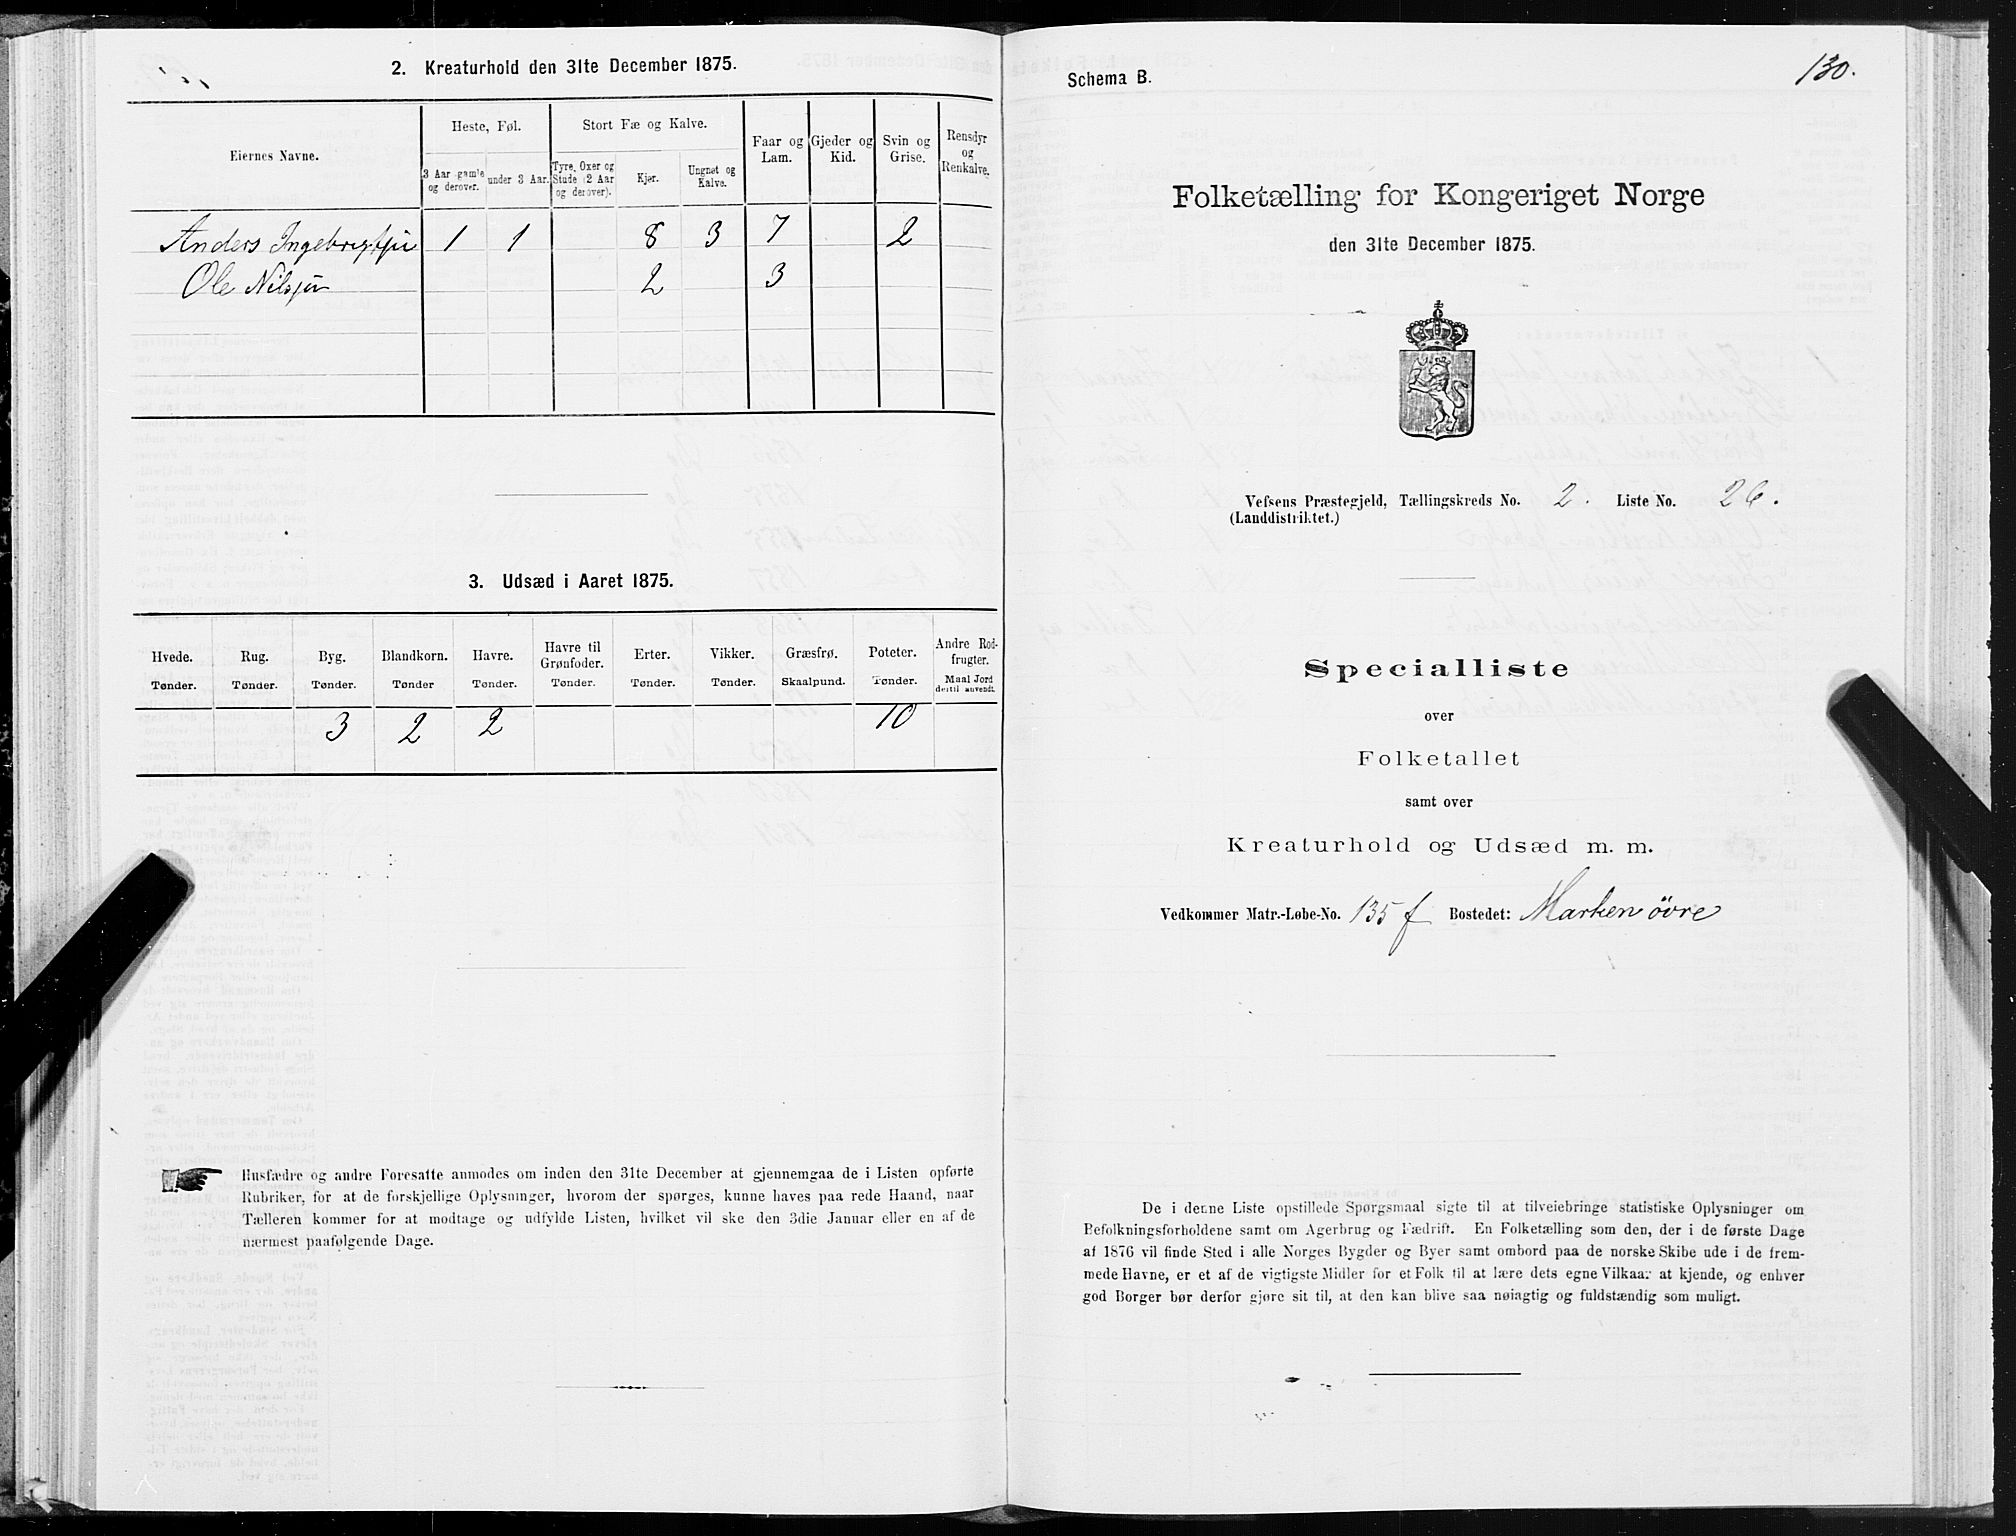 2. Kreaturhold den 31te December 1875.
Eiernes Navne.
Heste, Føl.
Stort Fæ og Kalve.
Faar og Lam.
Gjeder og Kid.
Svin og Grise.
Rensdyr og Renkalve.
3 Aar gamle og derover.
under 3 Aar.
Tyre, Oxer og Stude (2 Aar og derover).
Kjør.
Ungnøt og Kalve.
Anders Ingebrigtsen 1 1 8 3 7 2
Ole Nilsen 2 3
3. Udsæd i Aaret 1875.
Hvede. Rug. Byg. Blandkorn. Havre. Havre til Grønfoder. Erter. Vikker. Græsfrø. Poteter. Andre Rodfrugter.
Tønder. Tønder. Tønder. Tønder Tønder. Tønder. Tønder. Tønder. Skaalpund. Tønder. Maal Jord dertil anvendt.
3 2 2 10
Husfædre og andre Foresatte anmodes om inden den 31te December at gjennemgaa de i Listen opførte
Rubriker, for at de forskjellige Oplysninger, hvorom der spørges, kunne haves paa rede Haand, naar
Tælleren kommer for at modtage og udfylde Listen, hvilket vil ske den 3die Januar eller en af de
nærmest paafølgende Dage.
Schema B.
130.
Folketælling for Kongeriget Norge
den 31te December 1875.
Vefsens Præstegjeld, Tællingskreds No. 2. Liste No. 26.
(Landdistriktet.)
Specialliste
over
Folketallet
samt over
Kreaturhold og Udsæd m. m.
Vedkommer Matr.-Løbe-No. 135 f Bostedet: Marken øvre
De i denne Liste opstillede Spørgsmaal sigte til at tilveiebringe statistiske Oplysninger om
Befolkningsforholdene samt om Agerbrug og Fædrift. En Folketælling som den, der i de første Dage
af 1876 vil finde Sted i alle Norges Bygder og Byer samt ombord paa de norske Skibe ude i de frem-
mede Havne, er et af de vigtigste Midler for et Folk til at lære dets egne Vilkaar at kjende, og enhver
god Borger bør derfor gjøre sit til, at den kan blive saa nøiagtig og fuldstændig som muligt.